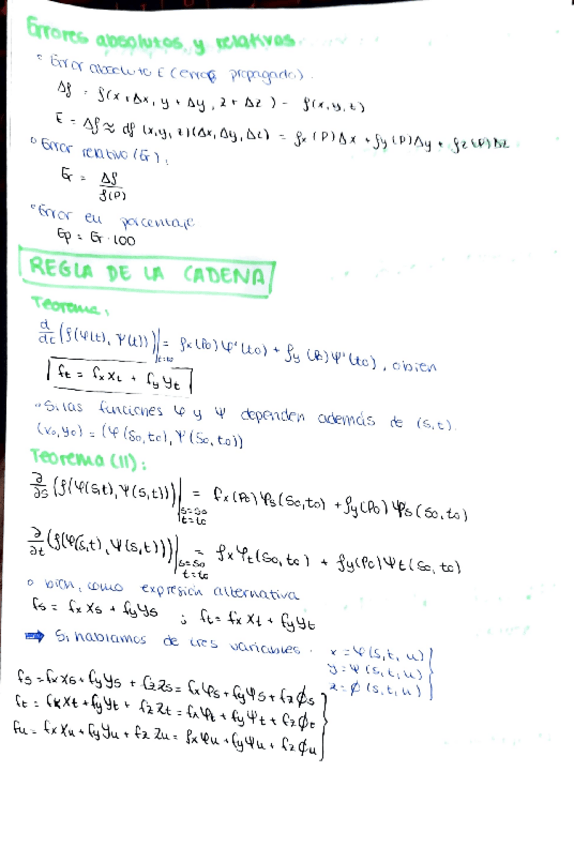 Errores absolutos y relativos
° Error absoluto E (error propagado).
Δf = f(x+Δx, y+Δy, z+Δz) - f(x,y,z)
E = Δf ≈ df (x,y,z)(Δx,Δy,Δz) = fx(P)Δx + fy(P)Δy + fz(P)Δz
° Error relativo (Er):
Er = Δf / f(P)
° Error en porcentaje
Ep = Er · 100
REGLA DE LA CADENA
Teorema:
d/dt (f(φ(t), ψ(t)))|t=t0 = fx(P0) φ'(t0) + fy(P0) ψ'(t0), o bien
ft = fx xt + fy yt
Si las funciones φ y ψ dependen además de (s,t).
(x0,y0) = (φ(s0,t0), ψ(s0,t0))
Teorema (II):
∂/∂s (f(φ(s,t), ψ(s,t)))|s=s0 t=t0 = fx(P0) φs(s0,t0) + fy(P0) ψs(s0,t0)
∂/∂t (f(φ(s,t), ψ(s,t)))|s=s0 t=t0 = fx φt(s0,t0) + fy(P0) ψt(s0,t0)
o bien, como expresión alternativa
fs = fx xs + fy ys ; ft = fx xt + fy yt
⇒ Si hablamos de tres variables. x = φ(s,t,u)
y = ψ(s,t,u)
z = ϕ(s,t,u)
fs = fx xs + fy ys + fz zs = fx φs + fy ψs + fz ϕs
ft = fx xt + fy yt + fz zt = fx φt + fy ψt + fz ϕt
fu = fx xu + fy yu + fz zu = fx φu + fy ψu + fz ϕu